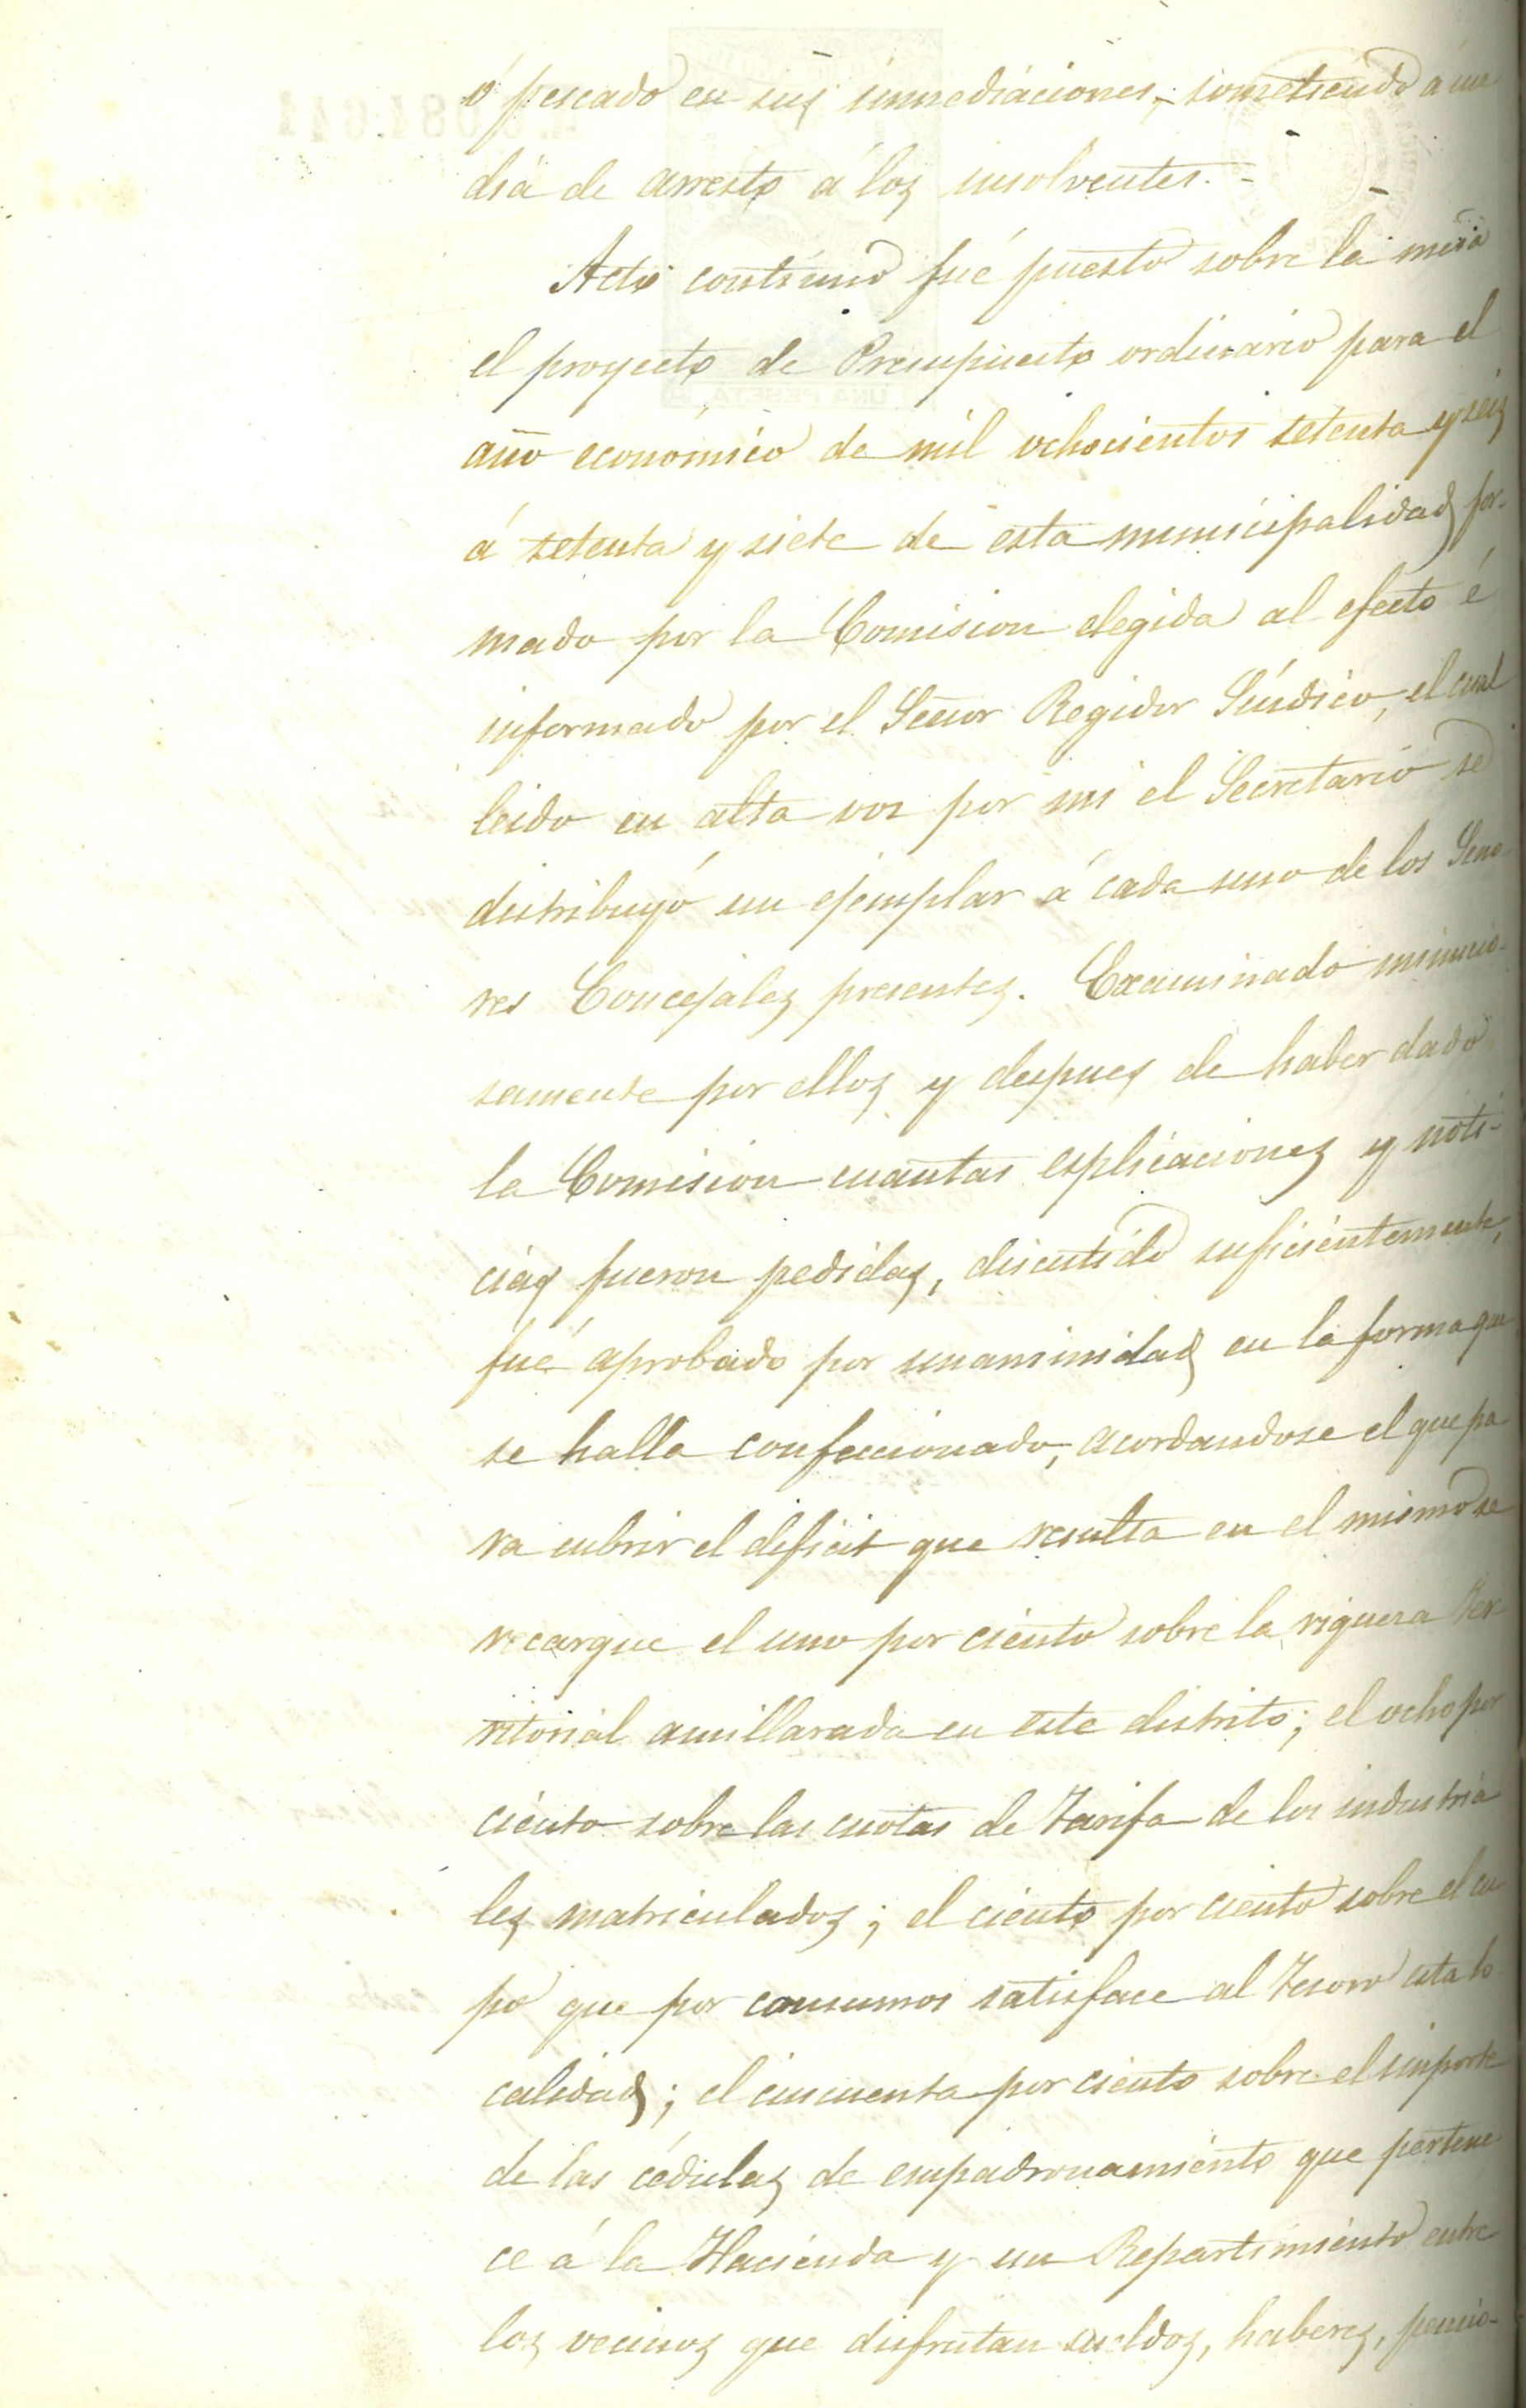 ó pescado en sus inmediaciones, sometiendo á un
dia de arresto á los insolventes.-
Acto contínuo fué puesto sobre la mesa
el proyecto de Presupuesto ordinario para el
UNA PESETA
año económico de mil ochocientos setenta y seis
á setenta y siete de esta municipalidad for-
mado por la Comision elegida al efecto é
informado por el Señor Regidor Síndico, el cual
leido en alta voz por mi el Secretario se
distribuyó un ejemplar á cada uno de los Seño-
res Concejales presentes. Examinado minucio-
samente por ellos y despues de haber dado
la Comision cuantas esplicaciones y noti-
cias fueron pedidas, discutido suficientemente,
fué aprobado por unanimidad en la forma que
se halla confeccionado, acordandose el que pa
ra cubrir el déficit que resulta en el mismo se
recargue el uno por ciento sobre la riqueza Ter
ritorial amillarada en este distrito; el ocho por
ciento sobre las cuotas de Tarifa de los industria
les matriculados; el ciento por ciento sobre el cu
po que por consumos satisface al Tesoro esta lo
calidad; el cincuenta por ciento sobre el importe
de las cédulas de empadronamiento que pertene
ce á la Hacienda y un Repartimiento entre
los vecinos que disfrutan sueldos, haberes, pensio-